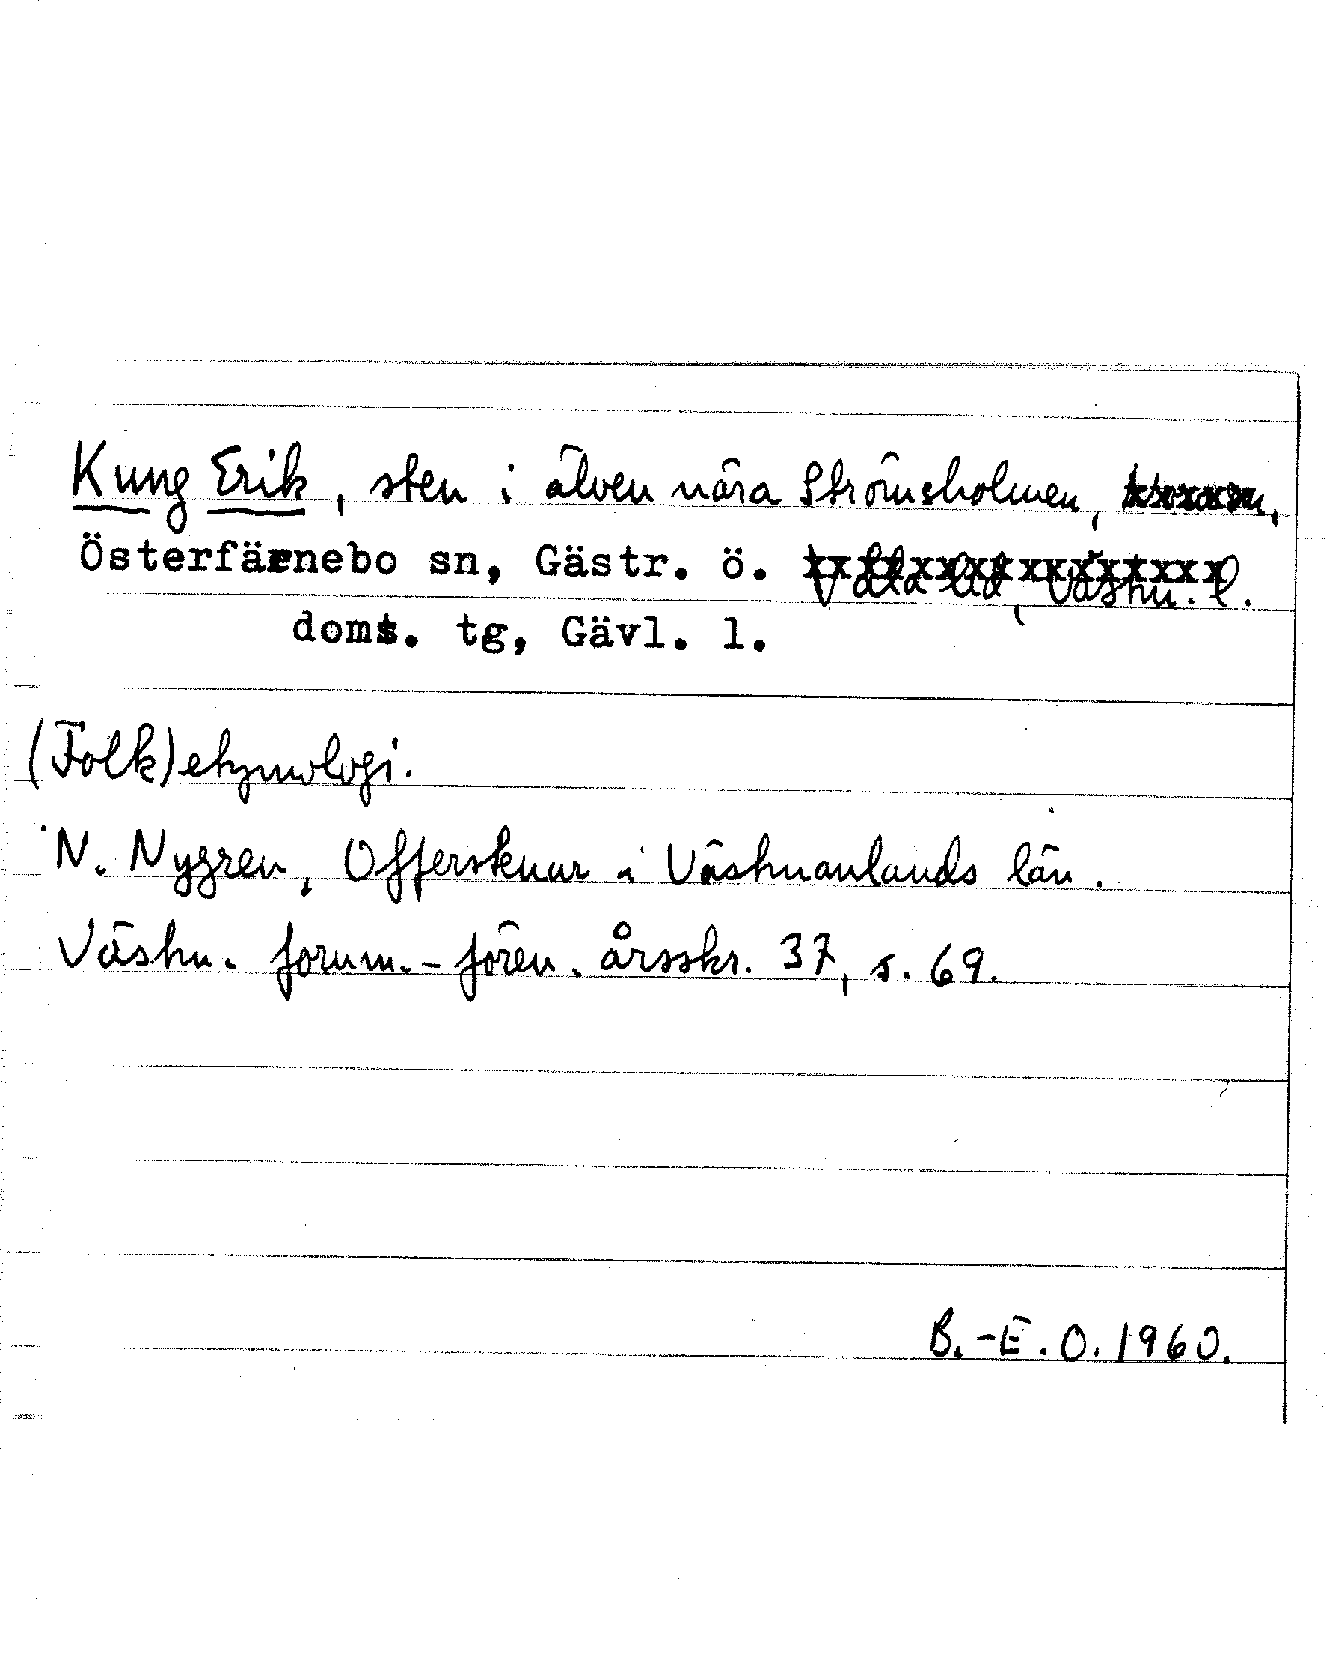 Kung Erik, sten i älven nära Strömsholmen,
Österfärnebo sn, Gästr. ö. Våla hd, Västm. l.
doms. tg, Gävl. l.
(Folk)etymologi.
N. Nygren, Offerstenar i Västmanlands län.
Västm. fornm.-fören. årsskr. 37, s. 69.
B.-E. O. 1960.